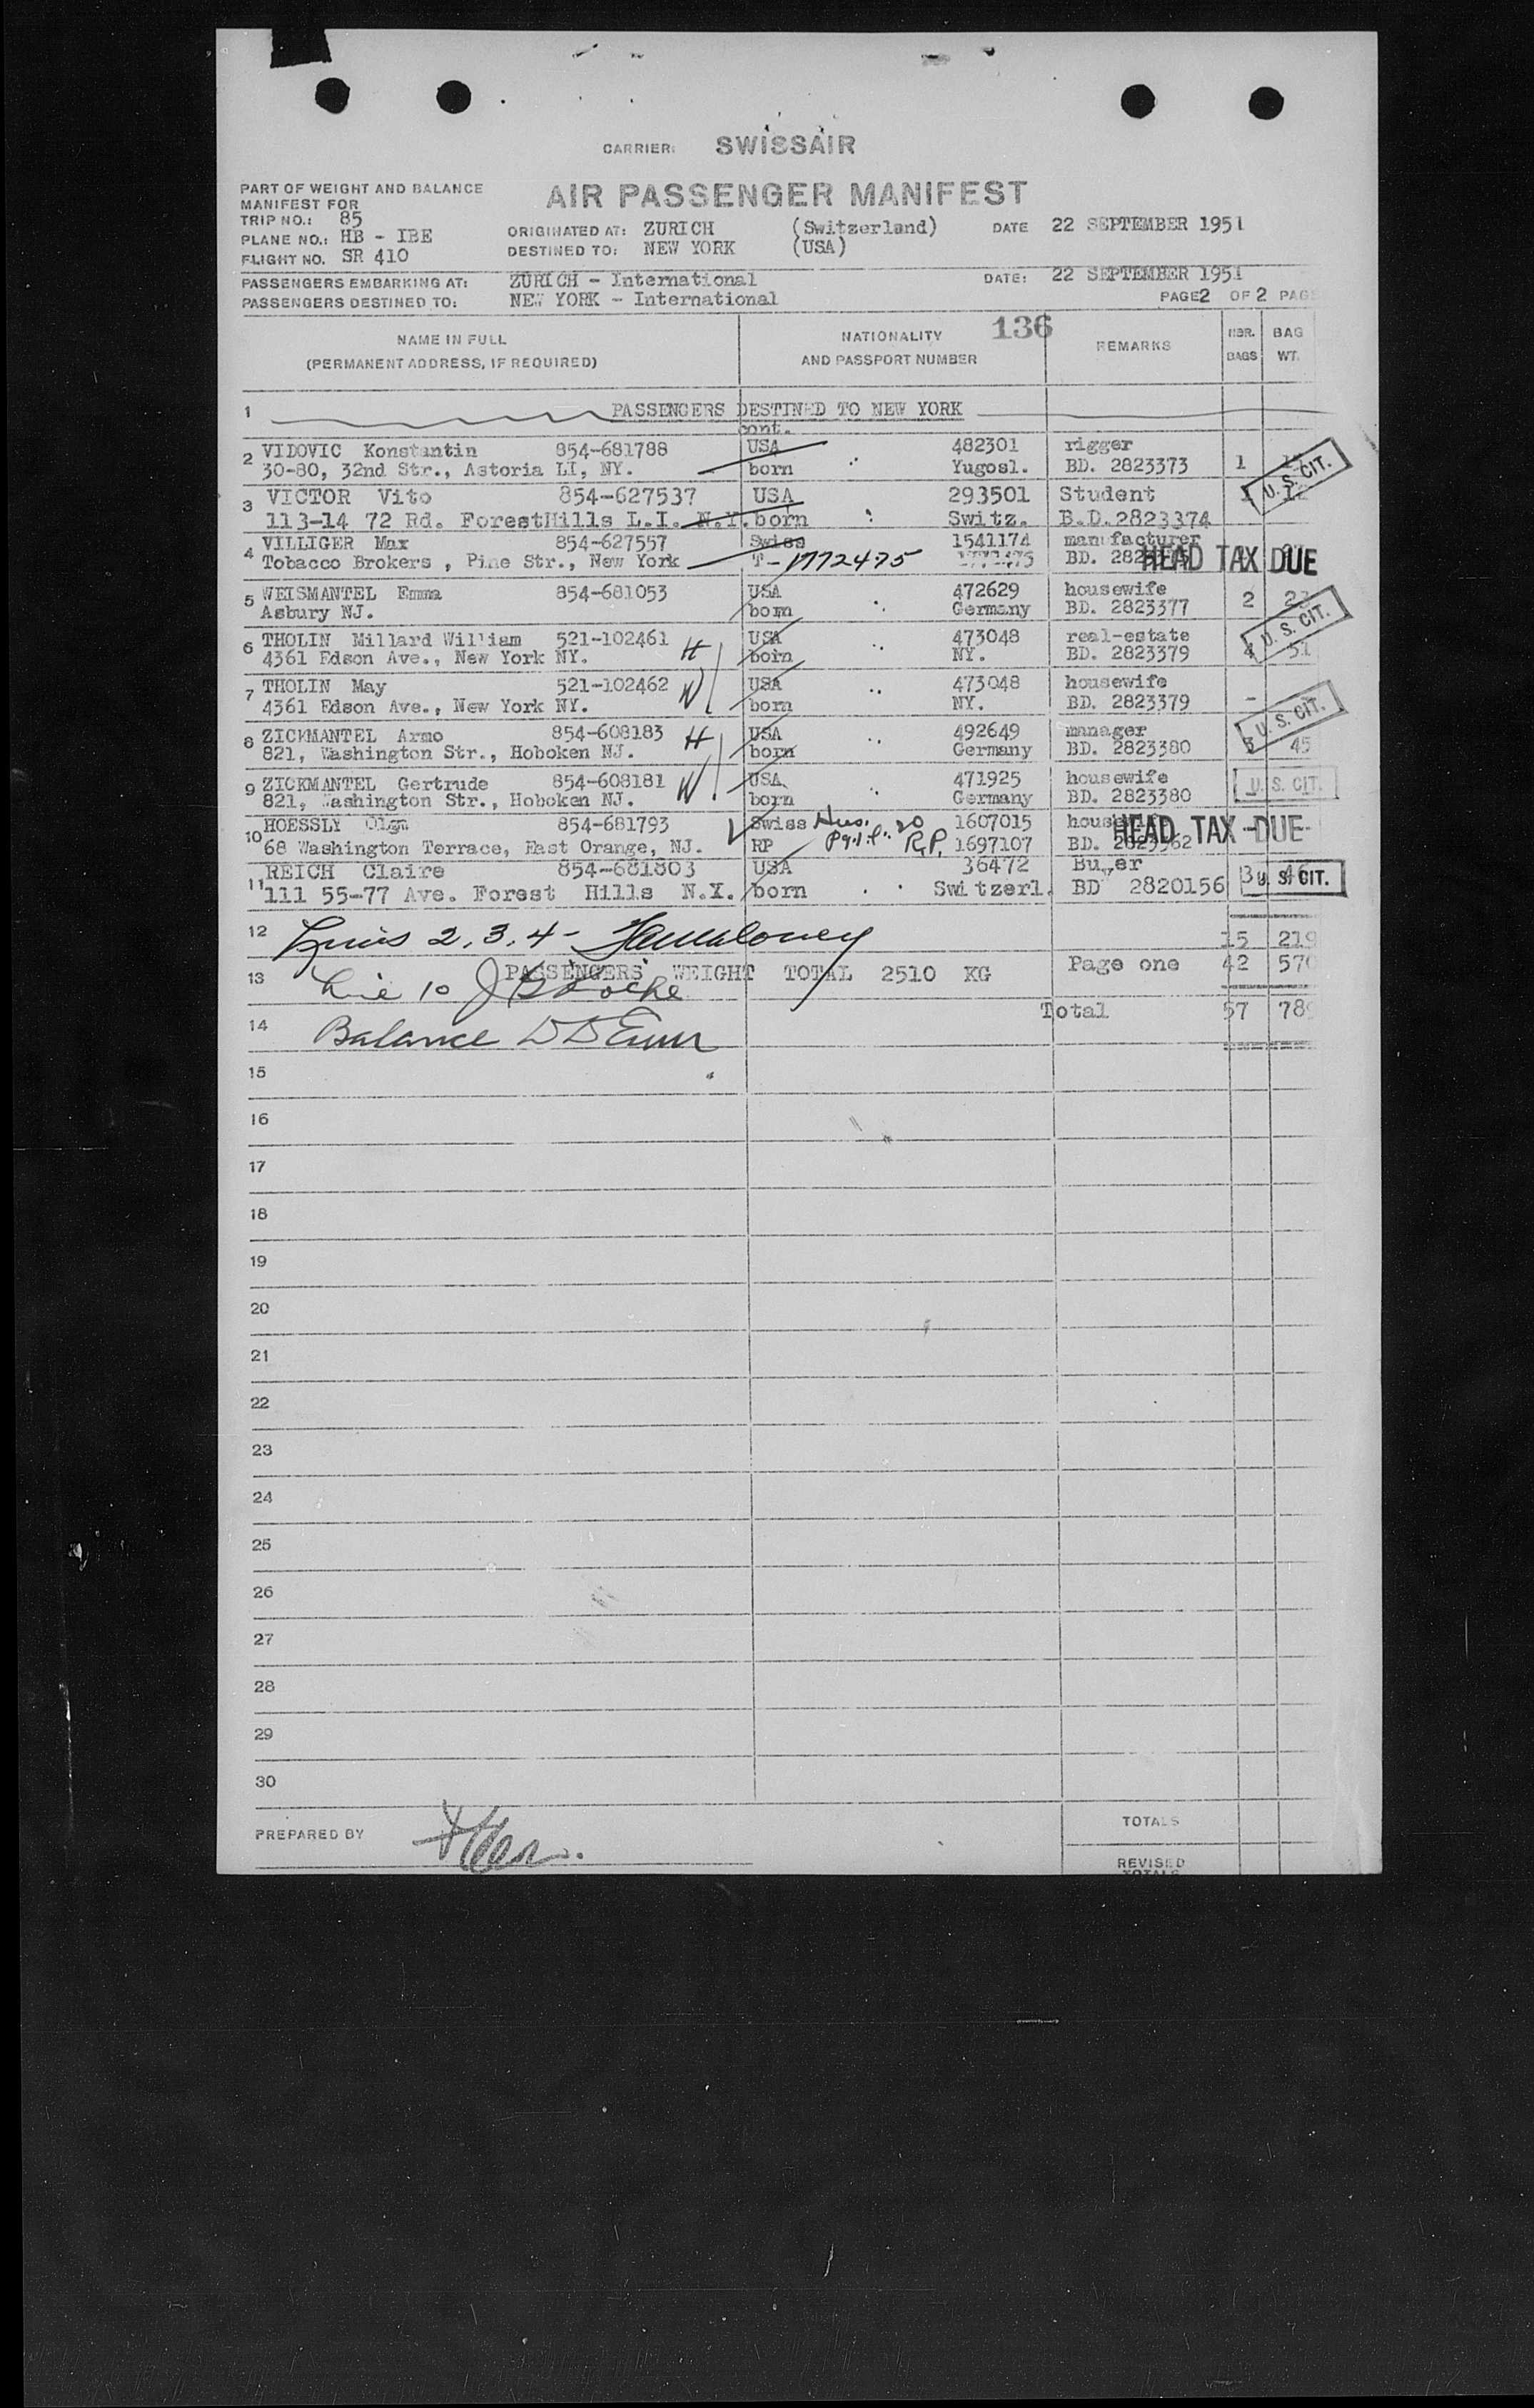 CARRIER: SWISSAIR
PART OF WEIGHT AND BALANCE
MANIFEST FOR
AIR PASSENGER MANIFEST
TRIP NO.: 85
PLANE NO.: HB - IBE
FLIGHT NO. SR 410
ORIGINATED AT: ZURICH (Switzerland) DATE 22 SEPTEMBER 1951
DESTINED TO: NEW YORK (USA)
PASSENGERS EMBARKING AT: ZURICH - International DATE: 22 SEPTEMBER 1951
PASSENGERS DESTINED TO: NEW YORK - International PAGE2 OF 2 PAG
136
NAME IN FULL NATIONALITY REMARKS NBR. BAG
(PERMANENT ADDRESS, IF REQUIRED) AND PASSPORT NUMBER BAGS WT.
1 PASSENGERS DESTINED TO NEW YORK
cont.
2 VIDOVIC Konstantin 854-681788 USA 482301 rigger
30-80, 32nd Str., Astoria LI, NY. born : Yugosl. BD. 2823373 1 U.S. CIT.
3 VICTOR Vito 854-627537 USA 293501 Student
113-14 72 Rd. ForestHills L.I. N.Y. born : Switz. B.D.2823374
4 VILLIGER Max 854-627557 Swiss 1541174 manufacturer
Tobacco Brokers , Pine Str., New York T-1772475 BD. HEAD TAX DUE
5 WEISMANTEL Emma 854-681053 USA 472629 housewife
Asbury NJ. born : Germany BD. 2823377 2 U.S. CIT.
6 THOLIN Millard William 521-102461 H USA 473048 real-estate
4361 Edson Ave., New York NY. born : NY. BD. 2823379 4 51
7 THOLIN May 521-102462 W USA 473048 housewife
4361 Edson Ave., New York NY. born : NY. BD. 2823379 - U.S. CIT.
8 ZICKMANTEL Armo 854-608183 H USA 492649 manager
821, Washington Str., Hoboken NJ. born : Germany BD. 2823380 3 45
9 ZICKMANTEL Gertrude 854-608181 W USA 471925 housewife U.S. CIT.
821, Washington Str., Hoboken NJ. born : Germany BD. 2823380
10 HOESSLY Olga 854-681793 Swiss 1607015 housewife
68 Washington Terrace, East Orange, NJ. RP R.P. 1697107 BD. HEAD TAX DUE
11 REICH Claire 854-681803 USA 36472 Buyer
111 55-77 Ave. Forest Hills N.Y. born : Switzerl. BD 2820156 3 U.S. CIT.
12 Lines 2, 3, 4 - 15 219
13 PASSENGERS WEIGHT TOTAL 2510 KG Page one 42 570
Line 10
Total 57 789
14 Balance
15
16
17
18
19
20
21
22
23
24
25
26
27
28
29
30
PREPARED BY TOTALS
REVISED
TOTALS